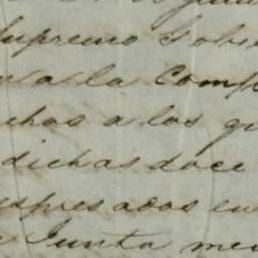 Supremo Gobie
a la Comp
chos a los qu
dichas doce
espresados en
Junta me